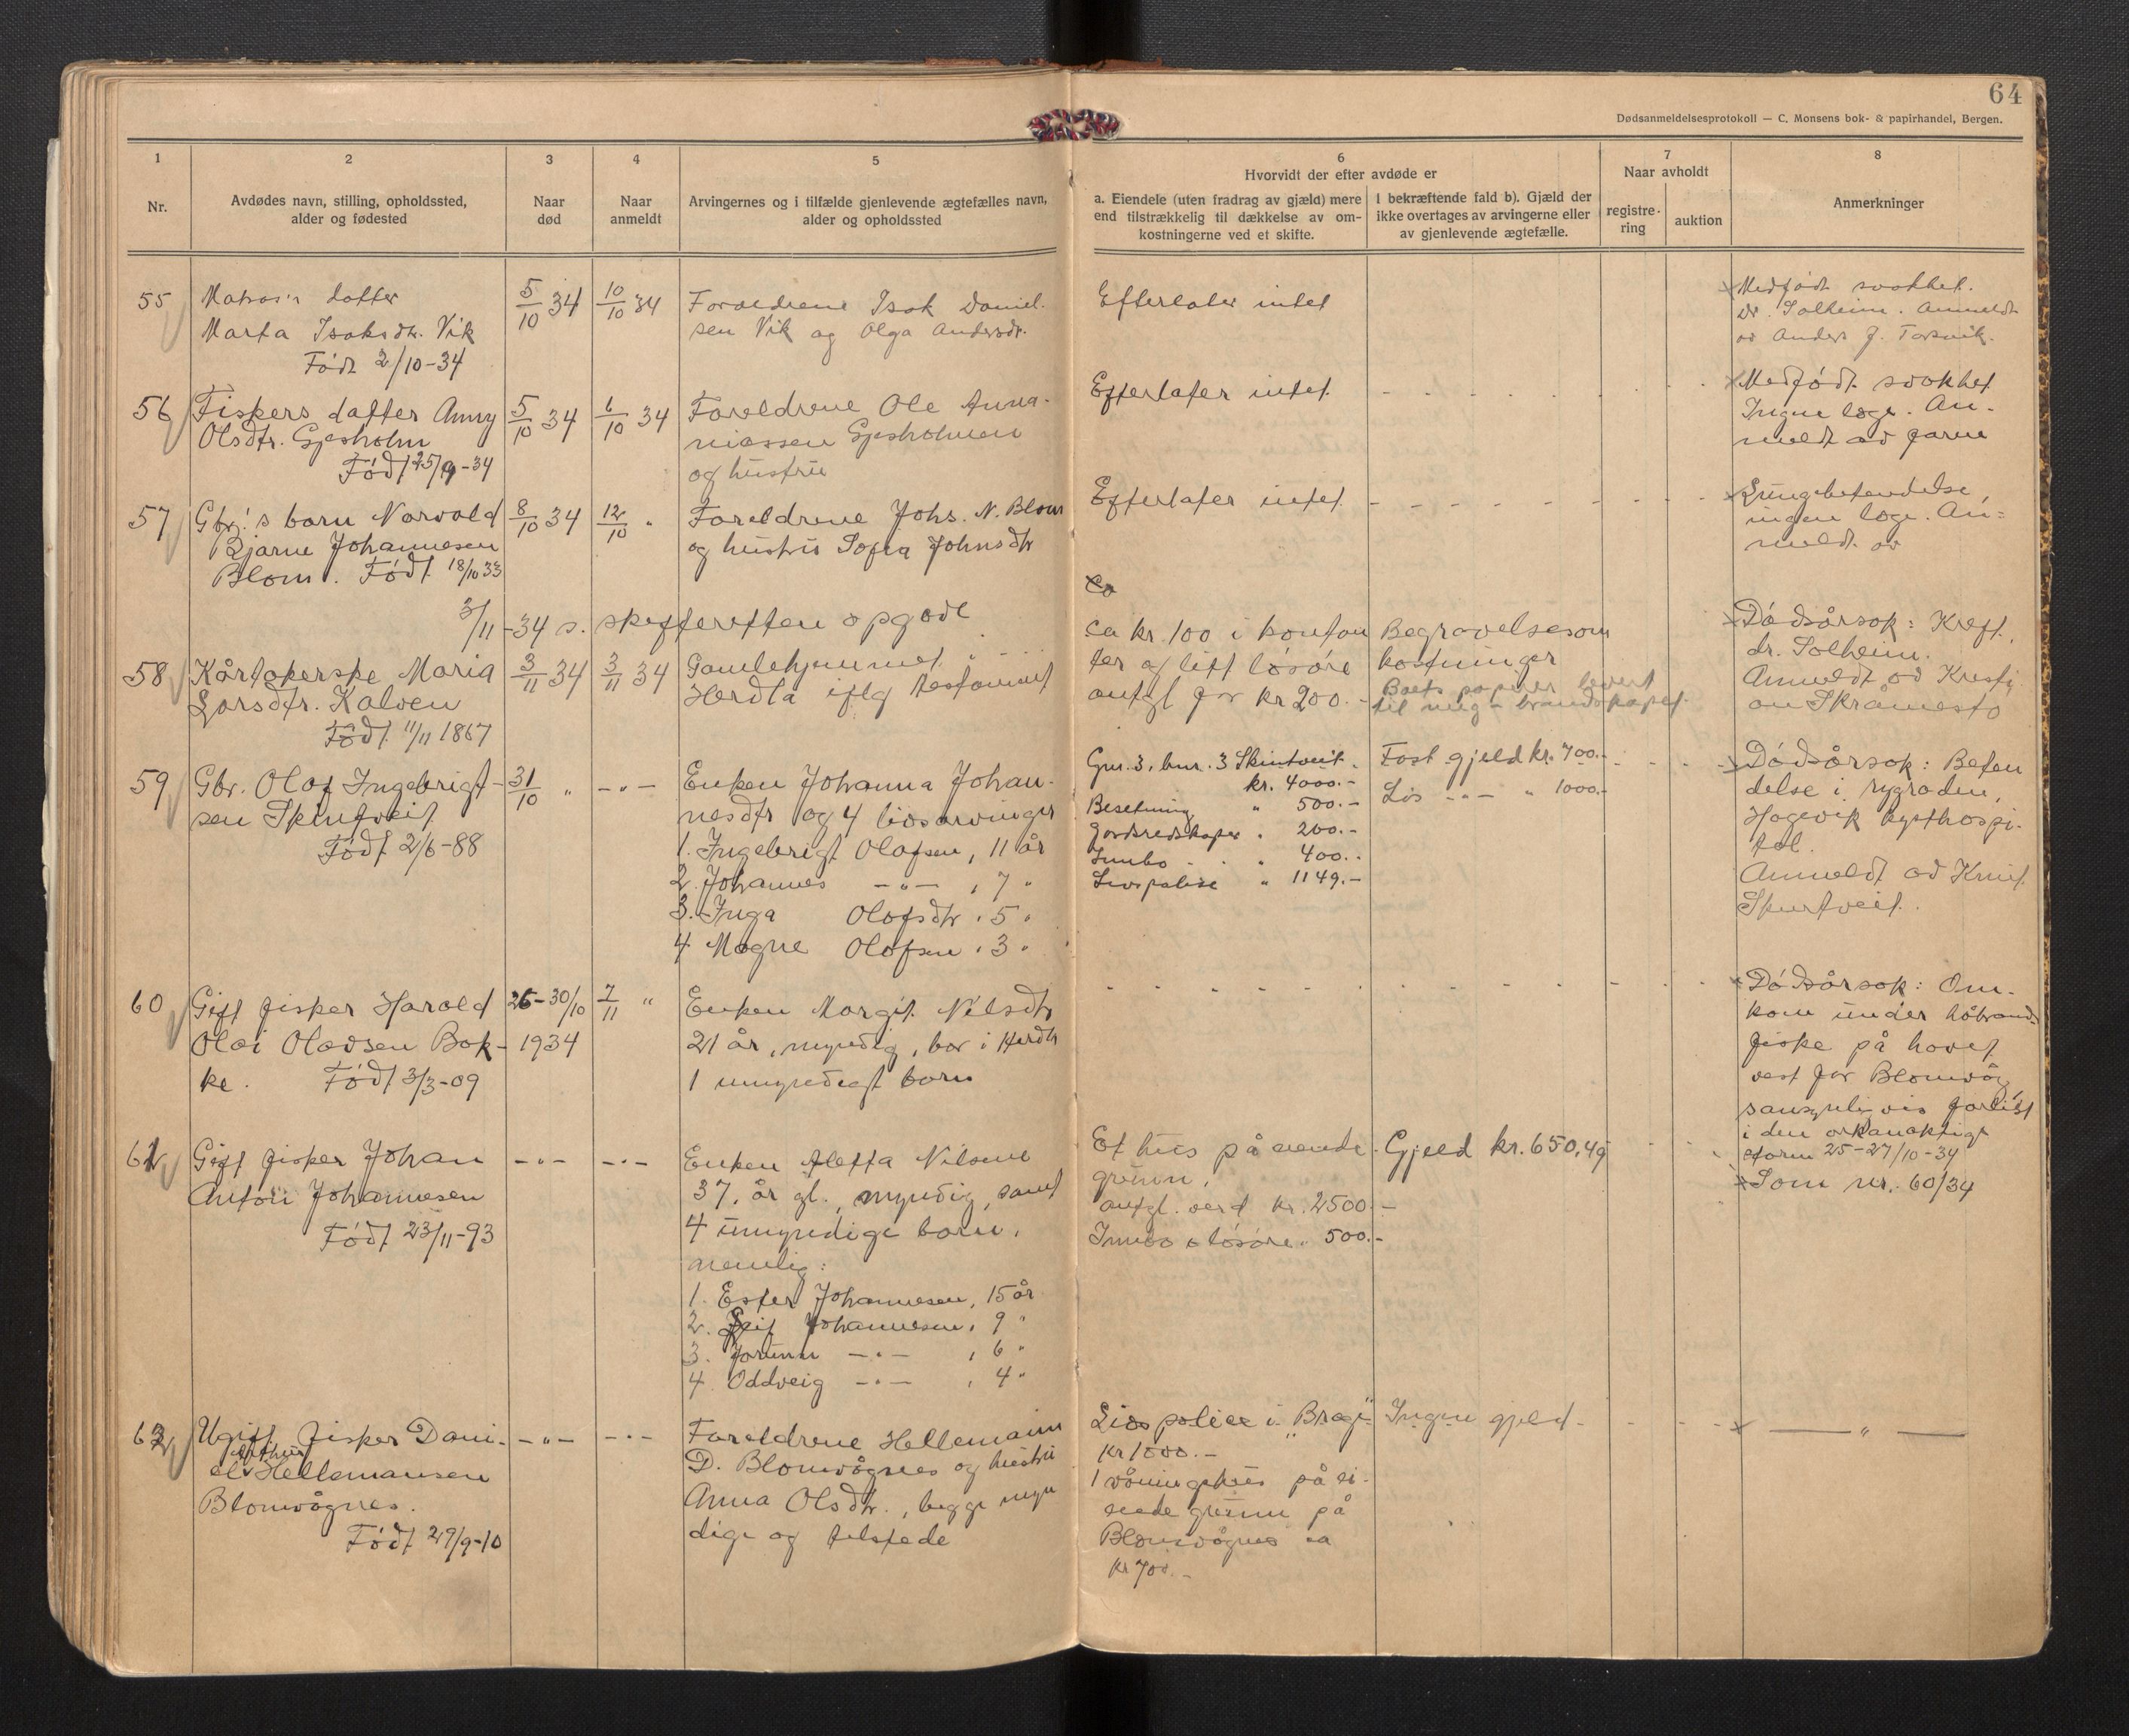 64
Dødsanmeldelsesprotokoll — C. Monsens bok- & papirhandel, Bergen.
1
2
3
4
5
6
7
8
Nr.
Avdødes navn, stilling, opholdssted,
alder og fødested
Naar
død
Naar
anmeldt
Arvingernes og i tilfælde gjenlevende ægtefælles navn,
alder og opholdssted
Hvorvidt der efter avdøde er
a. Eiendele (uten fradrag av gjæld) mere
end tilstrækkelig til dækkelse av om-
kostningerne ved et skifte.
I bekræftende fald b). Gjæld der
ikke overtages av arvingerne eller
av gjenlevende ægtefælle.
Naar avholdt
registre-
ring
auktion
Anmerkninger
55
datter
Marta Isaksdtr. Vik
Født 2/10-34
5/10 34
10/10 34
Foreldrene Isak Daniel-
sen Vik og Olga Andersdr.
Efterlater intet
Medfødt svakhet.
Dr. Solheim. Anmeldt
av Anders J. Torsvik.
56
Fiskers datter Anny
Olsdtr. Gjesholm
Født 25/9-34
5/10 34
6/10 34
Foreldrene Ole Anna-
niassen Gjesholmen
og hustru
Efterlater intet
Medfødt svakhet
Ingen læge. An-
meldt av faren
57
Gbr.'s barn Norvald
Bjarne Johannesen
Blom. Født 18/10 33
8/10 34
12/10 "
Foreldrene Johs. N. Blom
og hustru Sofia Johnsdtr
Efterlater intet
Lungebetendelse,
ingen læge. An=
meldt av
3/11-34 s. skifteretten opgave
58
Kårtakerske Maria
Larsdtr. Kalven
Født 11/11 1867
3/11 34
3/11 34
Gamlehjemmet
Herdla iflg testament
Ca
ca kr. 100 i kontan
ter og litt løsøre
antgl for kr 200.-
Begravelsesom
kostninger
Boets papirer levert
til meg - brandskapet.
Dødsårsak: Kreft,
dr. Solheim.
Anmeldt av Kristi
an Skråmestø
59
Gbr. Olaf Ingebrigt-
sen Skintveit
Født 2/6-88
31/10 "
-"-
Enken Johanna Johan-
nesdtr og 4 livsarvinger
1. Ingebrigt Olafsen, 11 år
2. Johannes -"- , 7 "
3. Inga Olafsdtr , 5 "
4 Magne Olafsen , 3 "
Gnr. 3, bnr. 3 Skintveit.
kr. 4000.-
Besetning " 500.-
Gardsredskaper " 200.-
Innbo " 400.-
Livspolise " 1149.-
Fast gjeld kr. 700.-
Løs -"- " 1000.-
Dødsårsak: Beten
delse i rygraden,
Hagevik kysthospi-
tal.
Anmeldt av Knut
Skintveit.
60
Gift fisker Harald
Olai Olavsen Bak-
ke. Født 3/3-09
25-30/10
1934
7/11 "
Enken Margit Nilsdtr
21 år, myndig, bor i Herdla
1 umyndigt barn
Dødsårsak: Om-
kom under håbrand-
fiske på havet
vest for Blomvåg,
sansynligvis forlist
i den orkanaktige
storm 25-27/10-34
61
Gift fisker Johan
Anton Johannesen
Født 23/11-93
-"-
-"-
Enken Aletta Nilsine
37 år gl., myndig, samt
4 umyndige barn,
nemlig:
1. Ester Johannesen, 15 år
2. Leif Johannesen, 9 "
3. Jorunn -"- , 6 "
4. Oddveig -"- , 4 "
Et hus på eiende
grunn,
antgl. verd kr. 2500.-
Innbo o løsøre " 500.-
Gjeld kr. 650,49
Som nr. 60/34
62
Ugift fisker Dani-
Arthur
el Hellemansen
Blomvågnes.
Født 29/9-10
-"-
-"-
Foreldrene Hellemann
D. Blomvågnes og hustru
Anna Olsdtr., begge myn
dige og tilstede
Livspolise i "Brage"
kr 1000.-
1 våningshus på ei-
ende grunn på
Blomvågnes ca
kr 700.-
Ingen gjeld
— " —